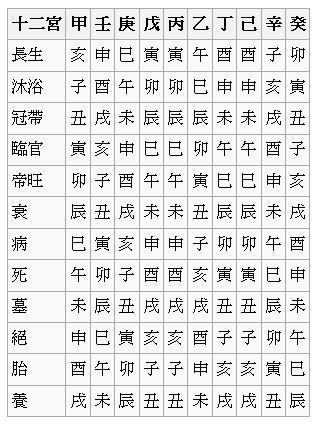 十二宮 甲 壬 庚 戊 丙 乙 丁 己 辛 癸
長生 亥 申 巳 寅 寅 午 酉 酉 子 卯
沐浴 子 酉 午 卯 卯 巳 申 申 亥 寅
冠帶 丑 戌 未 辰 辰 辰 未 未 戌 丑
臨官 寅 亥 申 巳 巳 卯 午 午 酉 子
帝旺 卯 子 酉 午 午 寅 巳 巳 申 亥
衰 辰 丑 戌 未 未 丑 辰 辰 未 戌
病 巳 寅 亥 申 申 子 卯 卯 午 酉
死 午 卯 子 酉 酉 亥 寅 寅 巳 申
墓 未 辰 丑 戌 戌 戌 丑 丑 辰 未
絕 申 巳 寅 亥 亥 酉 子 子 卯 午
胎 酉 午 卯 子 子 申 亥 亥 寅 巳
養 戌 未 辰 丑 丑 未 戌 戌 丑 辰